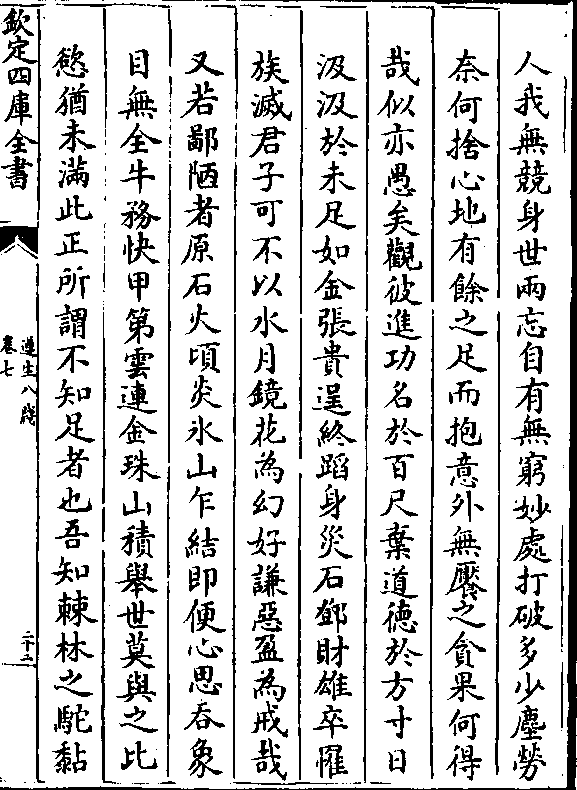 人我無競身世兩忘自有無窮妙處打破多少塵勞
奈何捨心地有餘之足而抱意外無饜之貪果何得
哉似亦愚矣觀彼進功名於百尺棄道德於方寸日
汲汲於未足如金張貴逞終蹈身災石鄧財雄卒罹
族滅君子可不以水月鏡花為幻好謙惡盈為戒哉
又若鄙陋者原石火頃炎氷山乍結即便心思吞象
目無全牛務快甲第雲連金珠山積舉世莫與之比
慾猶未滿此正所謂不知足者也吾知棘林之駝黏
欽定四庫全書
遵生八牋
卷七
二十二